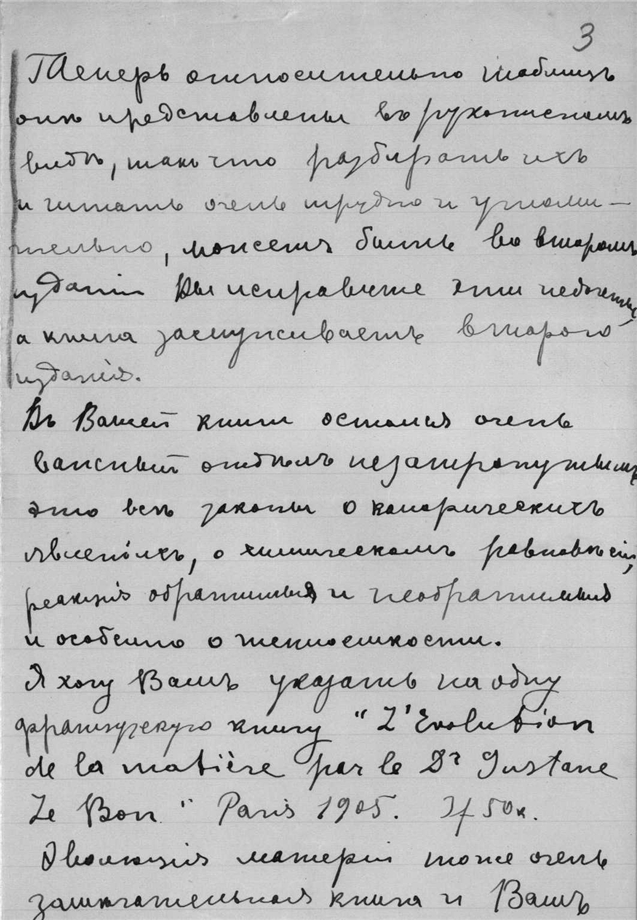 3
Теперь относительно таблицъ
онѣ представлены въ рукописномъ
видѣ, такъ что разбирать ихъ
и читать очень трудно и утоми-
тельно, можетъ быть во второмъ
изданіи Вы исправите эти недочеты,
а книга заслуживаетъ второго
изданія.
Въ Вашей книги остался очень
важный отдѣлъ незатронутымъ,
это всѣ законы о калорическихъ
явленіяхъ, о химическомъ равновѣсіи,
реакція обратимыя и необратимыя
и особенно о теплоемкости.
Я хочу Вамъ указать на одну
французскую книгу "L'Evolution
de la matière par le Dr Gustave
Le Bon" Paris 1905. 3f 50к.
Эволюція матеріи тоже очень
замѣчательная книга и Вамъ